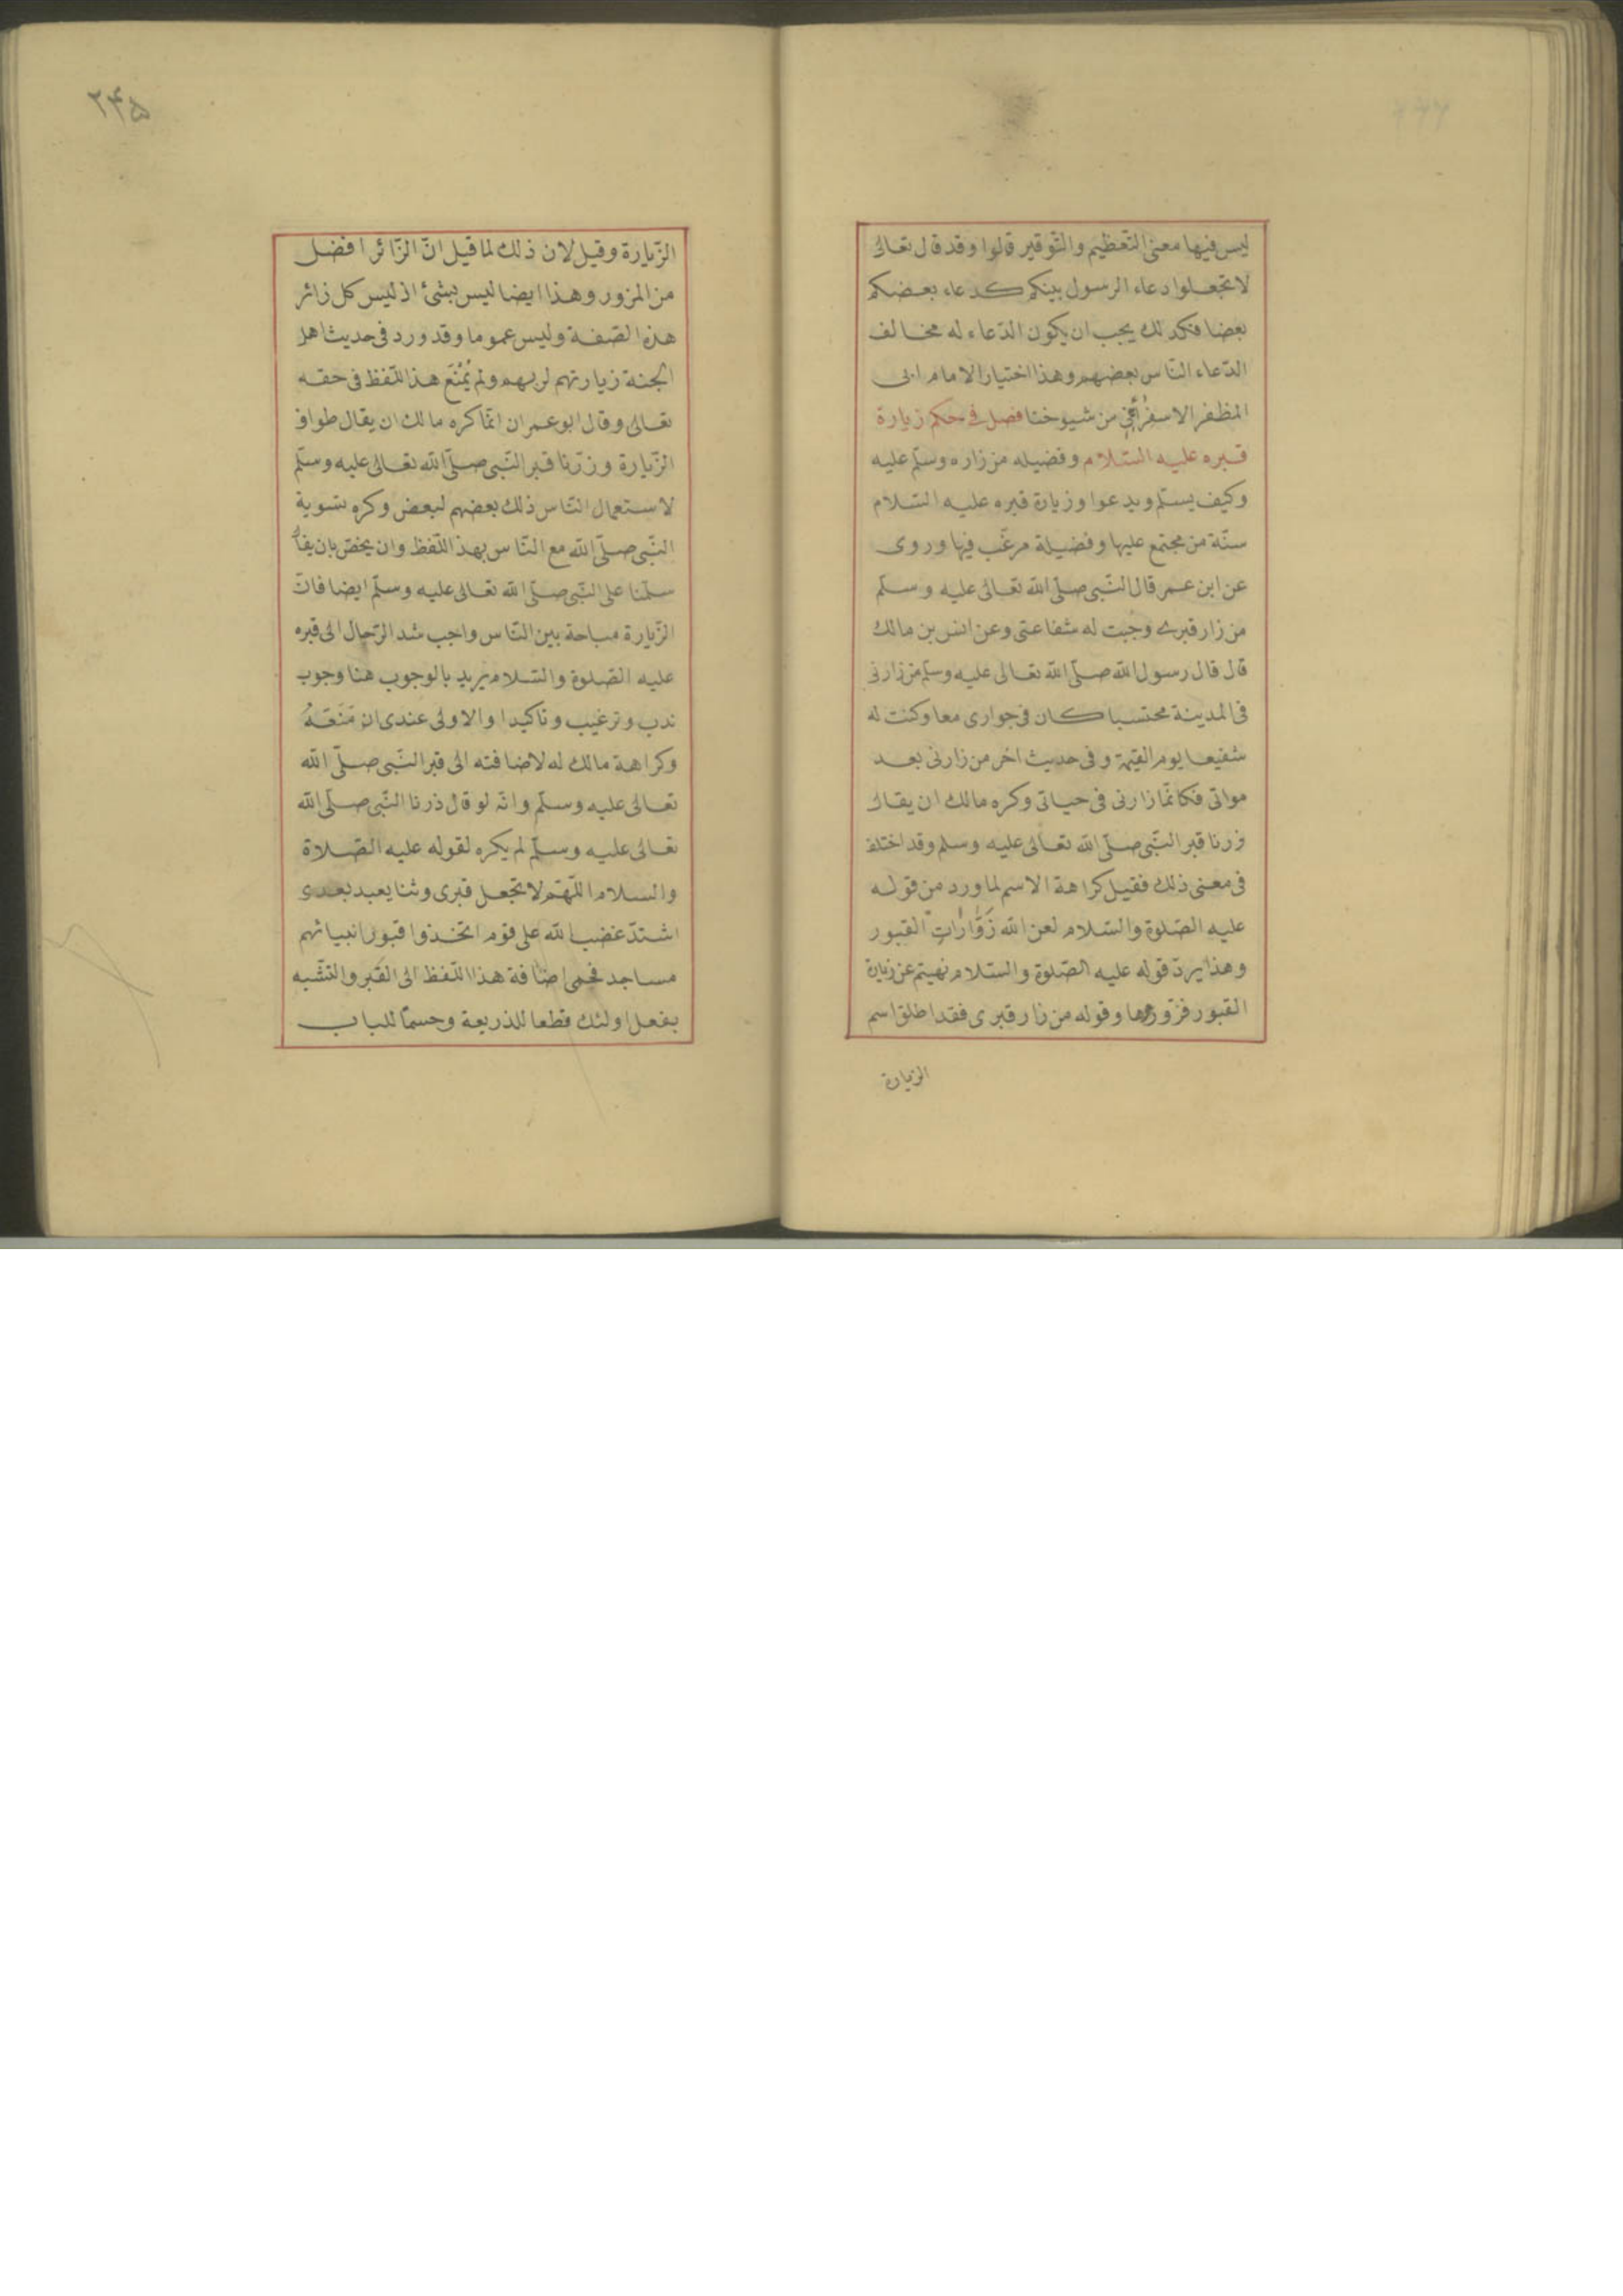 ليس فيها معنى التّعظيم والتّوقير قالوا وقد قال تعالى
لا تجعلوا دعاء الرسول بينكم كدعاء بعضكم
بعضا فكذلك يجب ان يكون الدّعاء له مخالف
الدّعاء النّاس بعضهم وهذا اختيار الامام ابى
المظفر الاسفرائنى من شيوخنا فصل فى حكم زيارة
قبره عليه السّلام وفضيله من زاره وسلّم عليه
وكيف يسلّم ويدعوا وزيارة قبره عليه السّلام
سنّة من مجتمع عليها وفضيلة مرغّب فيها وروى
عن ابن عمر قال النّبى صلّى الله تعالى عليه وسلّم
من زار قبرى وجبت له شفاعتى وعن انس بن مالك
قال قال رسول الله صلّى الله تعالى عليه وسلّم من زارنى
فى المدينة محتسبا كان فى جوارى معا وكنت له
شفيعا يوم القيمة وفى حديث اخر من زارنى بعد
مواتى فكانّما زارنى فى حياتى وكره مالك ان يقال
زرنا قبر النّبى صلّى الله تعالى عليه وسلم وقد اختلف
فى معنى ذلك فقيل كراهة الاسم لما ورد من قوله
عليه الصّلوة والسّلام لعن الله زَوَّارَاتِ القبور
وهذا يردّ قوله عليه الصّلوة والسّلام نهيتم عن زيارة
القبور فزوروها وقوله من زار قبرى فقد اطلق اسم
الزيارة
٢۴۵
الزّيارة وقيل لان ذلك لما قيل انّ الزّائر افضل
من المزور وهذا ايضا ليس بشئ اذ ليس كل زائر
هذه الصّفة وليس عموما وقد ورد فى حديث اهل
الجنة زيارتهم لربهم ولم يُمْنَع هذا اللّفظ فى حقه
تعالى وقال ابو عمران انّما كره مالك ان يقال طواف
الزّيارة وزرنا قبر النّبى صلّى الله تعالى عليه وسلّم
لاستعمال النّاس ذلك بعضهم لبعض وكره تسوية
النّبى صلّى الله مع النّاس بهذ اللّفظ وان يخصّ بان يقال
سلّمنا على النّبى صلّى الله تعالى عليه وسلّم ايضا فانّ
الزّيارة مباحة بين النّاس واجب شد الرّحال الى قبره
عليه الصّلوة والسّلام يريد بالوجوب هنا وجوب
ندب وترغيب وتاكيدا والاولى عندى ان مَنَعَهُ
وكراهة مالك له لاضافته الى قبر النّبى صلّى الله
تعالى عليه وسلّم وانّه لو قال ذرنا النّبى صلّى الله
تعالى عليه وسلّم لم يكره لقوله عليه الصّلاة
والسلام اللّهمّ لا تجعل قبرى وثنا يعبد بعدى
اشتدّ غضب الله على قوم اتخذوا قبور انبيائهم
مساجد فحمى اضافة هذا اللّفظ الى القبر والتشّبه
بفعل اولئك قطعا للذريعة وحسمًا للباب